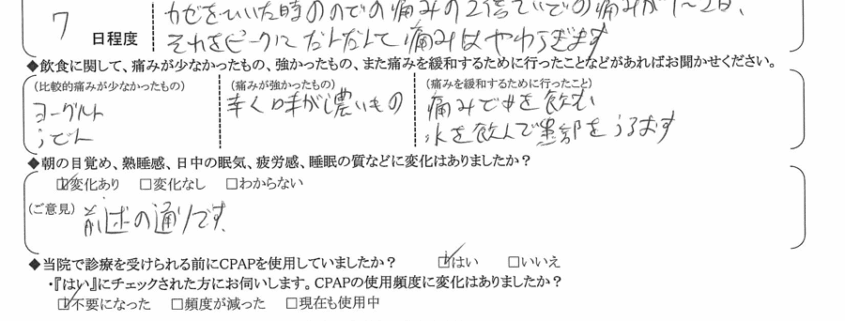 カゼをひいた時ののどの痛みの2倍ていどの痛みが1〜2日、
7 日程度 それをピークにだんだんと痛みはやわらぎます
◆飲食に関して、痛みが少なかったもの、強かったもの、また痛みを緩和するために行ったことなどがあればお聞かせください。
(比較的痛みが少なかったもの) (痛みが強かったもの) (痛みを緩和するために行ったこと)
ヨーグルト 辛く味が濃いもの 痛みどめを飲む
うどん 水を飲んで患部をうるおす
◆朝の目覚め、熟睡感、日中の眠気、疲労感、睡眠の質などに変化はありましたか?
☑変化あり □変化なし □わからない
(ご意見) 前述の通りです。
◆当院で診療を受けられる前にCPAPを使用していましたか? ☑はい □いいえ
・『はい』にチェックされた方にお伺いします。CPAPの使用頻度に変化はありましたか?
☑不要になった □頻度が減った □現在も使用中